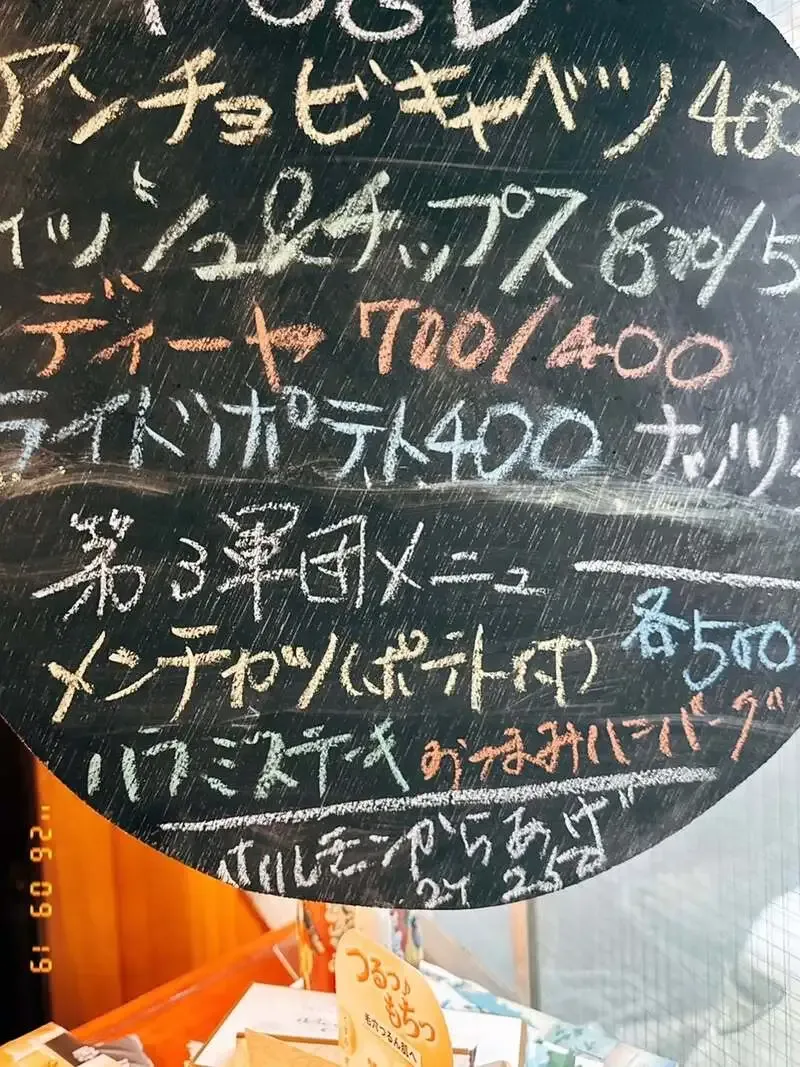 FOOD
アンチョビキャベツ 400
ィッシュ&チップス 800/5
ディーヤ 700/400
ライドポテト400 ナッツ
第3軍団メニュー
メンチカツ(ポテト付) 各500
ハラミステーキ おつまみハンバーグ
ホルモンからあげ
250
つるっ♪
もちっ
毛穴つるん肌へ
'26 09 19